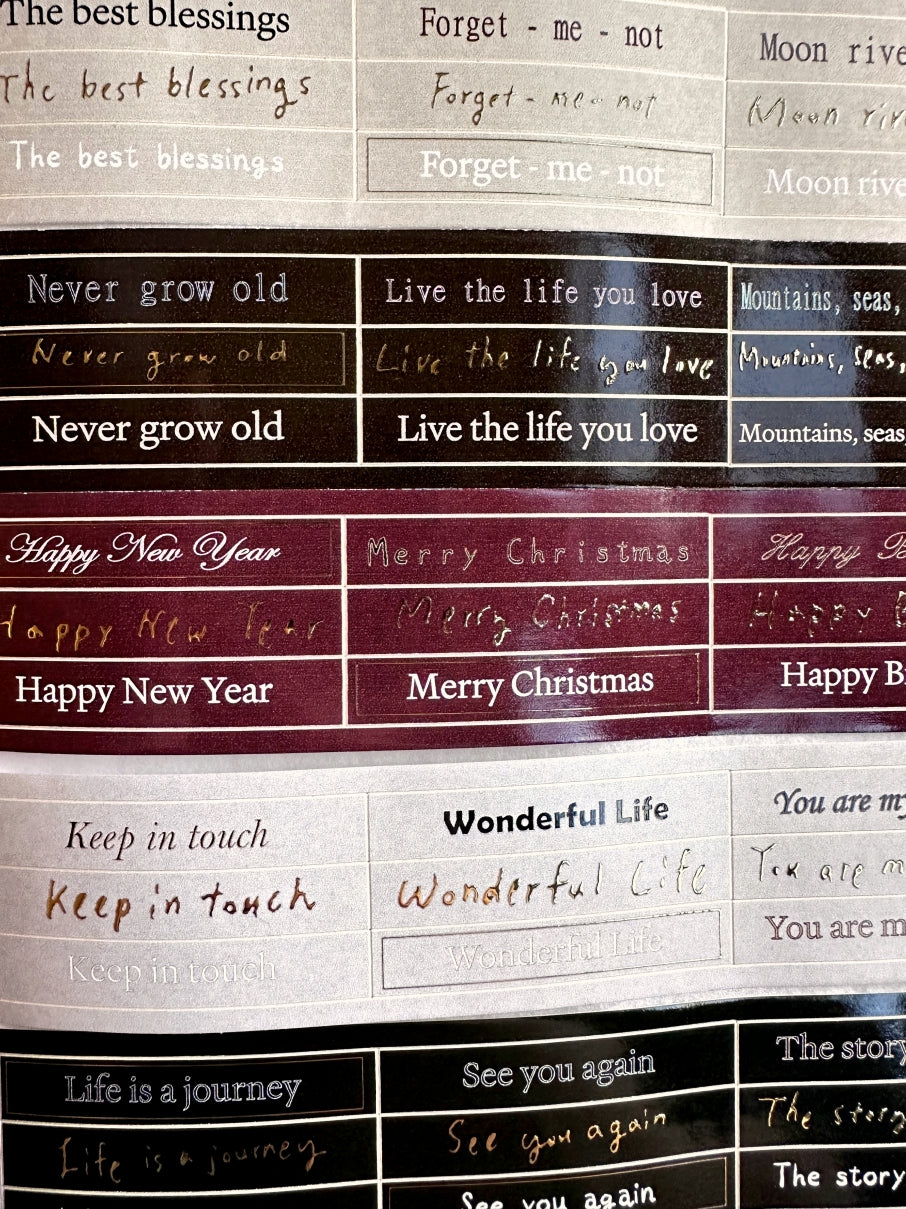 The best blessings
Forget - me - not
Moon rive
The best blessings
Forget - me - not
Moon riv
The best blessings
Forget - me - not
Moon rive
Never grow old
Live the life you love
Mountains, seas,
Never grow old
Live the life you love
Mountains, seas,
Never grow old
Live the life you love
Mountains, seas,
Happy New Year
Merry Christmas
Happy B
Happy New Year
Merry Christmas
Happy B
Happy New Year
Merry Christmas
Happy Bi
Keep in touch
Wonderful Life
You are my
Keep in touch
Wonderful Life
You are m
Keep in touch
Wonderful Life
You are m
Life is a journey
See you again
The story
Life is a journey
See you again
The story
See you again
The story